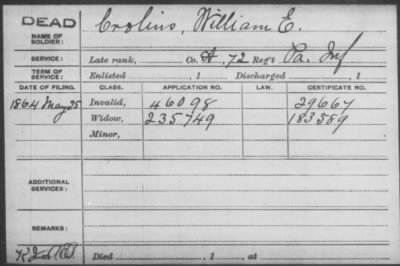 DEAD
NAME OF SOLDIER: Crolius, William E.
SERVICE: Late rank, Co. A, 72 Reg't Pa. Inf
TERM OF SERVICE: Enlisted , 1 Discharged , 1
DATE OF FILING. CLASS. APPLICATION NO. LAW. CERTIFICATE NO.
1864 May 25 Invalid, 46098 29667
Widow, 235749 183589
Minor,
ADDITIONAL SERVICES:
REMARKS:
Died , 1 , at